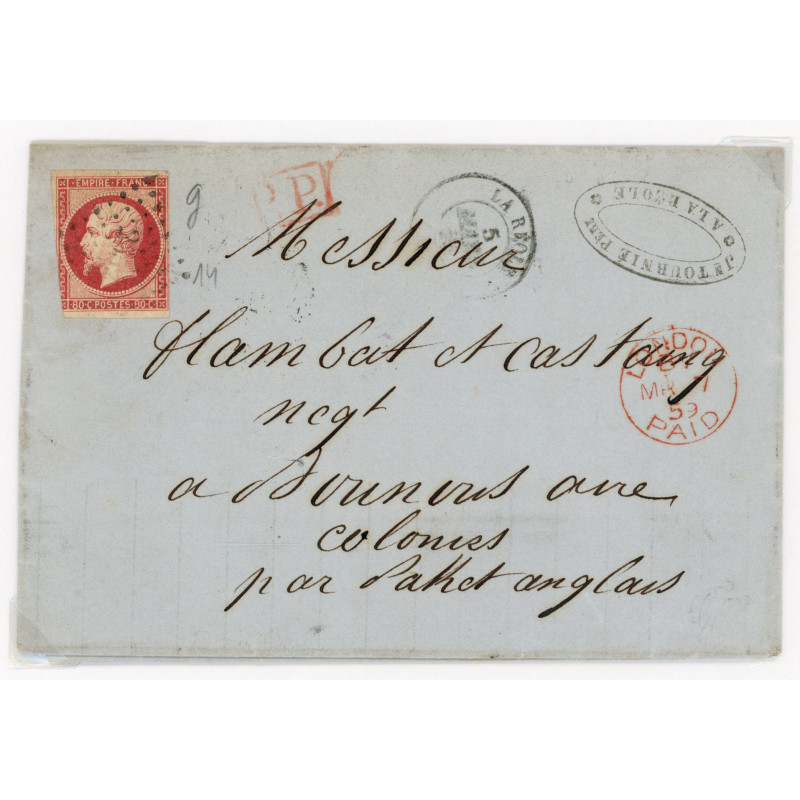 EMPIRE FRANC
80·C POSTES·80·C
g
14
P.P.
LA RÉOLE
5
MARS
Jn TOURNIÉ
A LA RÉOLE
LONDON
MR 7
59
PAID
Messieur
flambat et castaing
negt
a Bouenous aire
colonies
par Paket anglais